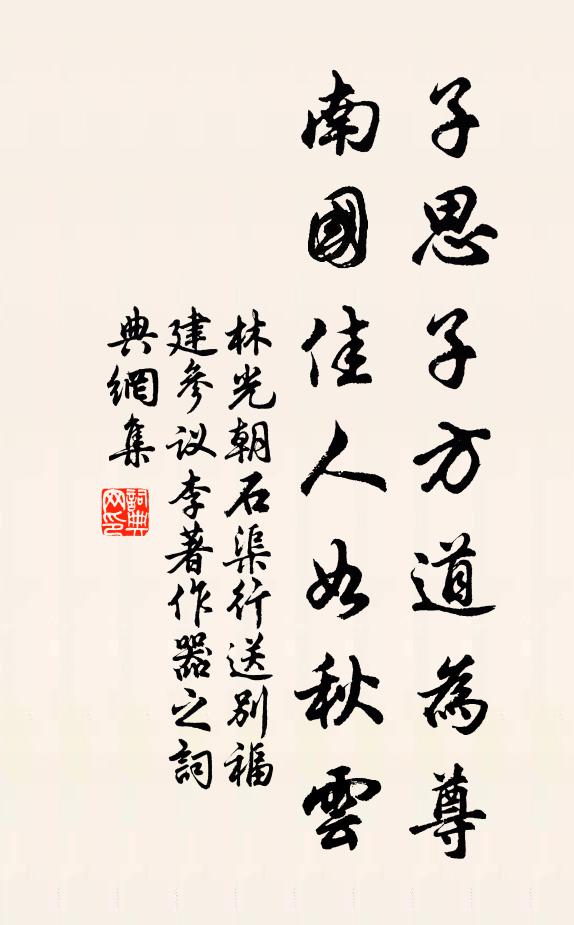 子思子方道為尊
南國佳人如秋雲
林光朝石渠行送別福
建參议李著作器之詞
典網集
詞典网印